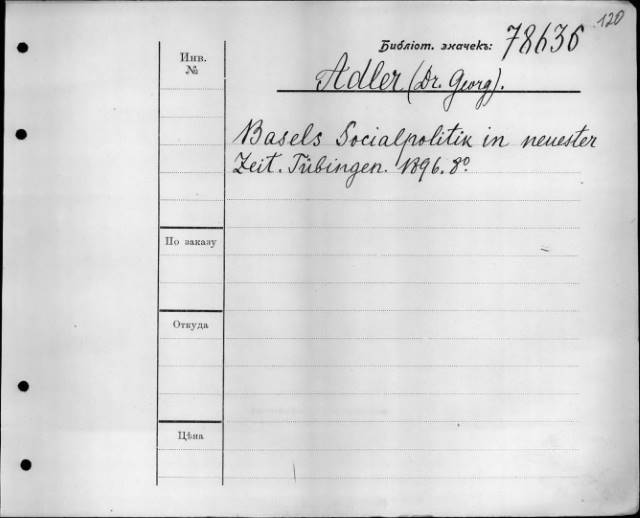 120
Библіот. значекъ: 78636
Инв.
№
Adler (Dr. Georg).
Basels Socialpolitik in neuester
Zeit. Tübingen. 1896. 8º
По заказу
Откуда
Цѣна